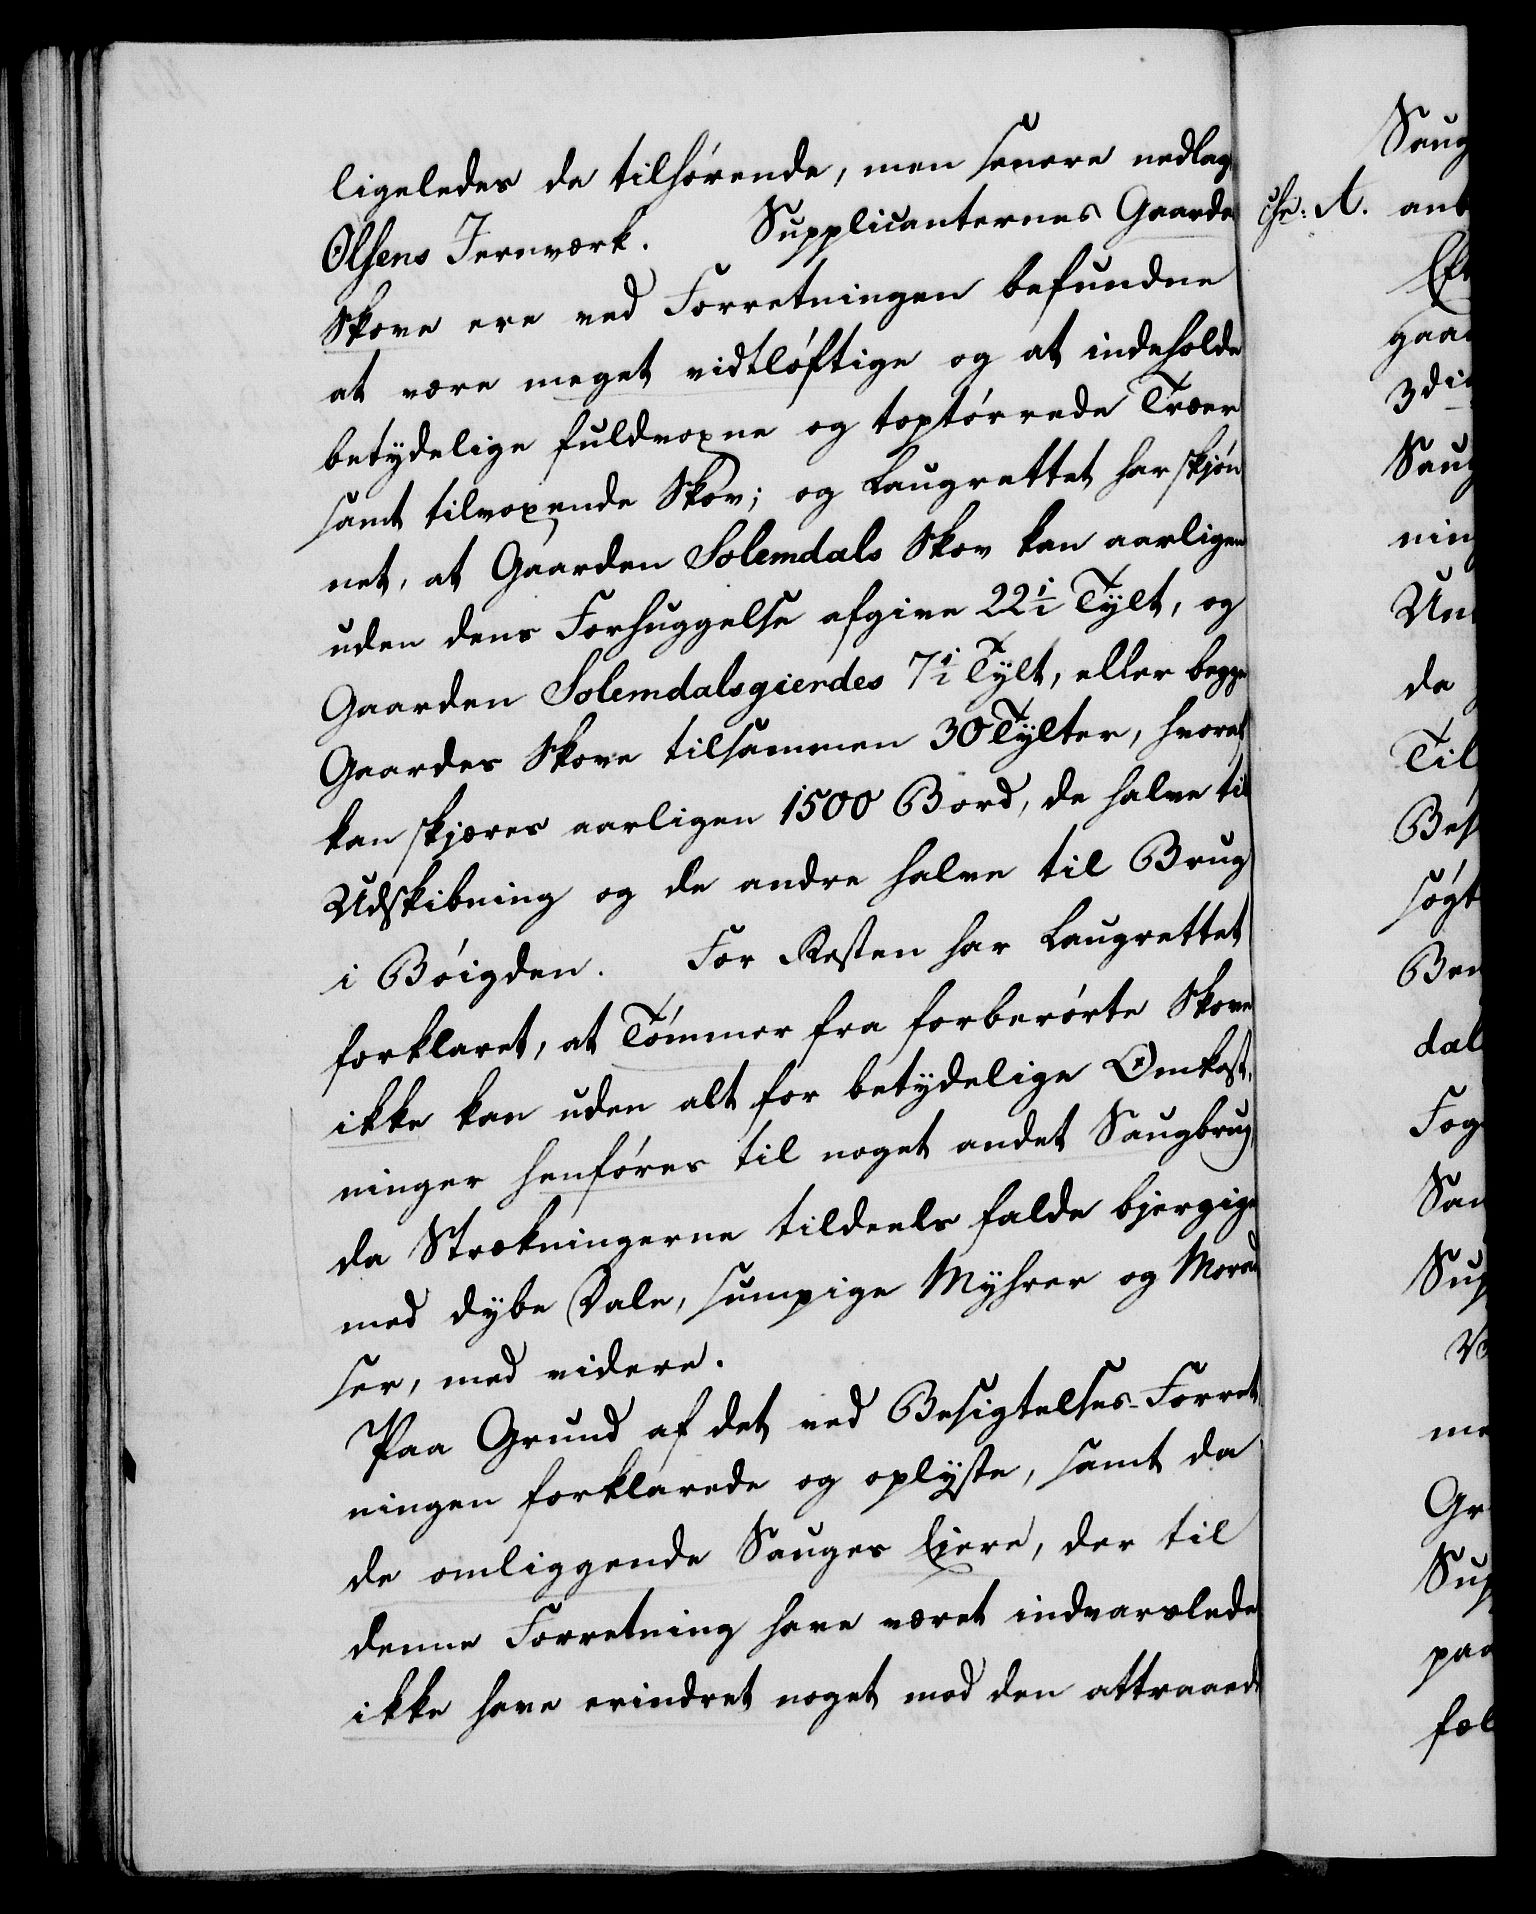 ligeledes de tilhörende, men senere nedlag
Olsens Jernværk. Supplicanternes Gaarde
Skove ere ved Forretningen befundne
at være meget vidtløftige og at indeholde
betydelige fuldvoxne og toptörrede Træer
samt tilvoxende Skov; og Laugrettet har skjön
net, at Gaarden Solemdals Skov kan aarligen
uden dens Forhuggelse afgive 22½ Tylt, og
Gaarden Solemdalsgierdes 7½ Tylt, eller begge
Gaardes Skove tilsammen 30 Tylter, hvoraf
kan skjæres aarligen 1500 Bord, de halve til
Udskibning og de andre halve til Brug
i Böigden. For Resten har Laugrettet
forklaret, at Tömmer fra forberörte Skove
ikke kan uden alt for betydelige Omkost,
ninger henföres til noget andet Saugbrug,
da Strækningerne tildeels falde bjergige
med dybe Dale, sumpige Myhrer og Morad
ser, med videre.
Paa Grund af det ved Besigtelses-Forret,
ningen forklarede og oplyste, samt da
de omliggende Sauges Eiere, der til
denne Forretning have været indvarslede
ikke have erindret noget mod den attraaed
Saug
A. anb
Eft
gaar
3die
Saug
ning
Un
da
Til
Bes
søgt
Ben
dal
Fog
San
Sup
me
Gr
Sup
paa
fæl